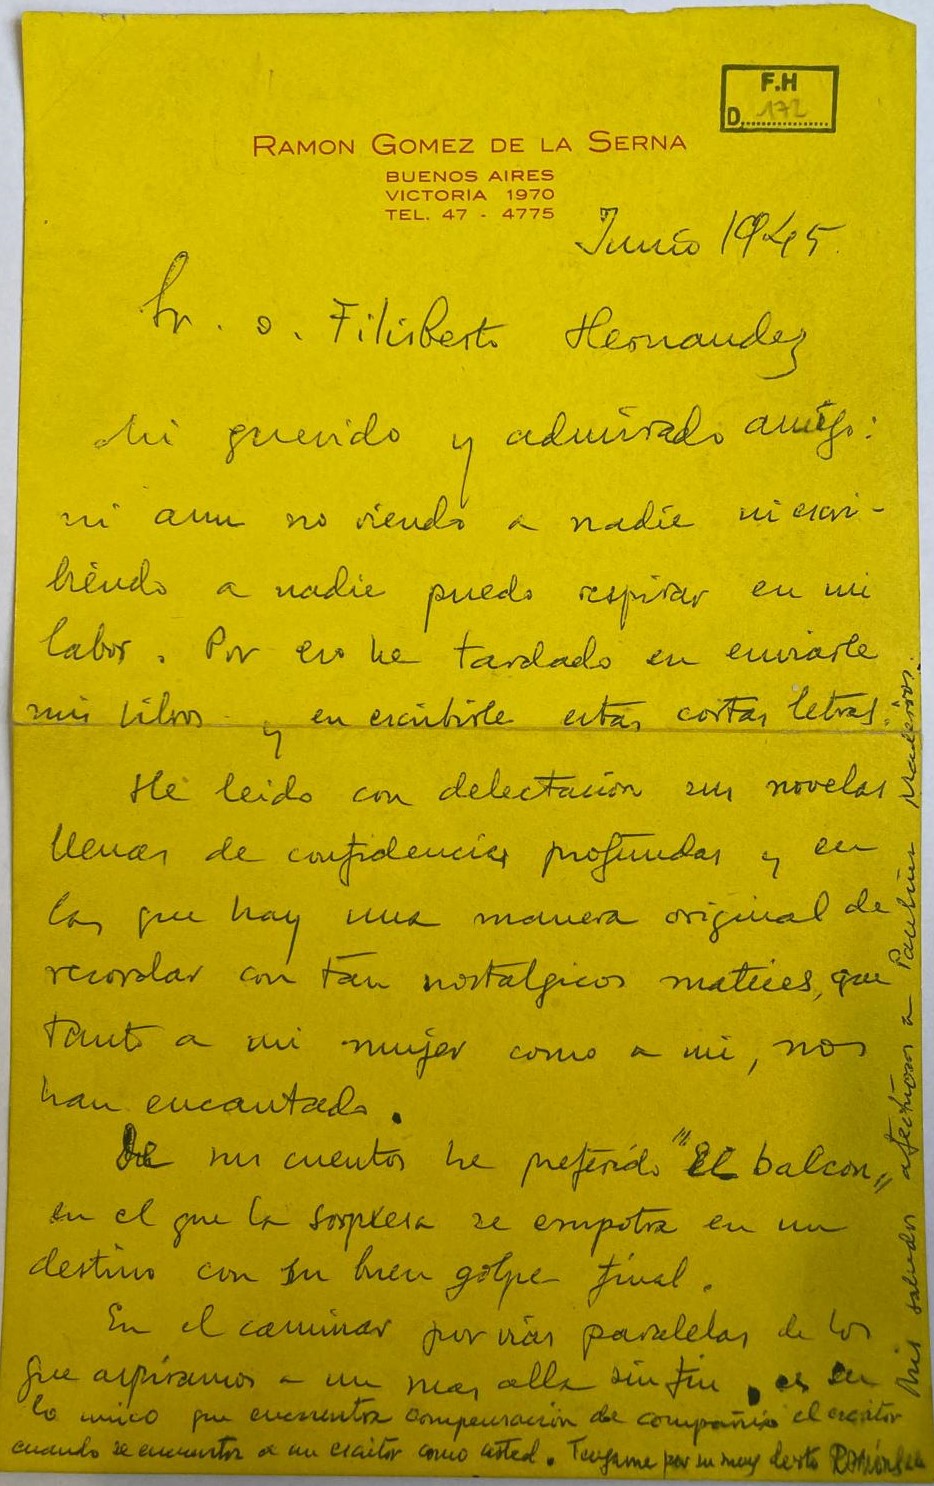 F.H
D. 172
RAMON GOMEZ DE LA SERNA
BUENOS AIRES
VICTORIA 1970
TEL. 47 - 4775
Junio 1945.
Sr. D. Filisberto Hernandez
Mi querido y admirado amigo:
ni aun no viendo a nadie ni escri-
biendo a nadie puedo respirar en mi
labor. Por eso he tardado en enviarle
mis libros y en escribirle estas cortas letras.
He leido con delectación sus novelas
llenas de confidencias profundas y en
las que hay una manera original de
recordar con tan nostalgicos matices, que
tanto a mi mujer como a mi, nos
han encantado.
De sus cuentos he preferido "El balcon"
en el que la sorpresa se empotra en un
destino con su buen golpe final.
En el caminar por vias paralelas de los
que aspiramos a un mas alla sin fin, es en
lo unico que encuentra compensación de compañia el escritor
cuando se encuentra a un escritor como usted. Tengame por su muy devto Ramón
Mis saludos afectuosos a Paulina Medeiros.